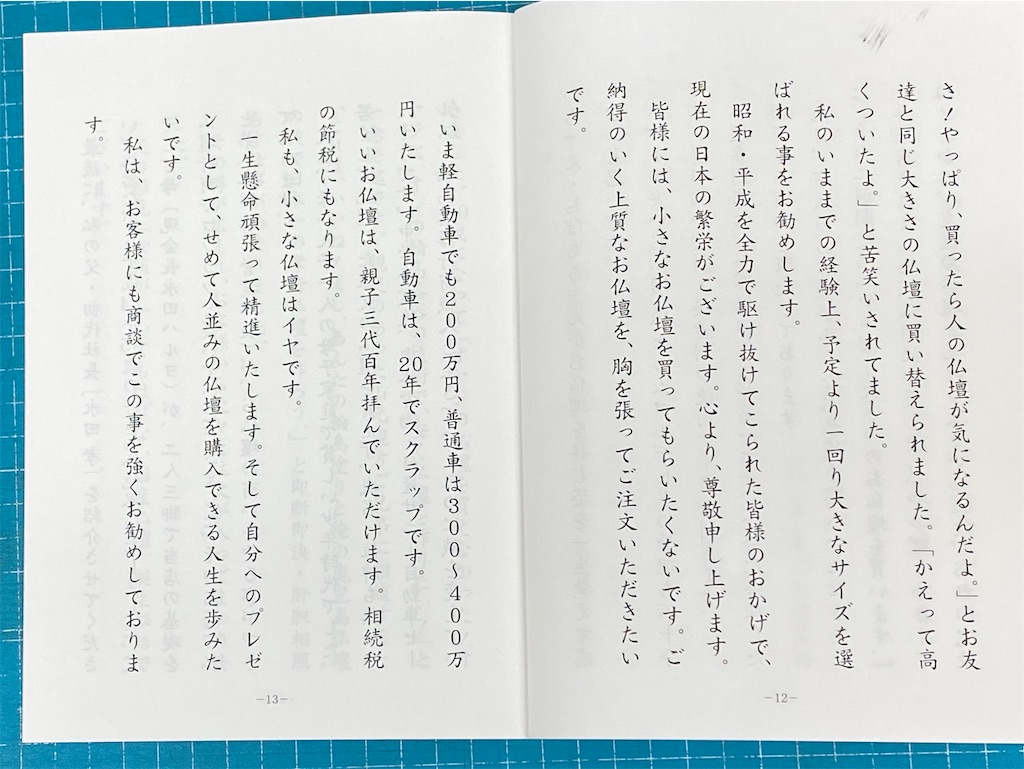 さ！やっぱり、買ったら人の仏壇が気になるんだよ。」とお友
達と同じ大きさの仏壇に買い替えられました。「かえって高
くついたよ。」と苦笑いされてました。
私のいままでの経験上、予定より一回り大きなサイズを選
ばれる事をお勧めします。
昭和・平成を全力で駆け抜けてこられた皆様のおかげで、
現在の日本の繁栄がございます。心より、尊敬申し上げます。
皆様には、小さなお仏壇を買ってもらいたくないです。ご
納得のいく上質なお仏壇を、胸を張ってご注文いただきたい
です。
－12－
いま軽自動車でも200万円、普通車は300～400万
円いたします。自動車は、20年でスクラップです。
いいお仏壇は、親子三代百年拝んでいただけます。相続税
の節税にもなります。
私も、小さな仏壇はイヤです。
一生懸命頑張って精進いたします。そして自分へのプレゼ
ントとして、せめて人並みの仏壇を購入できる人生を歩みた
いです。
私は、お客様にも商談でこの事を強くお勧めしておりま
す。
－13－